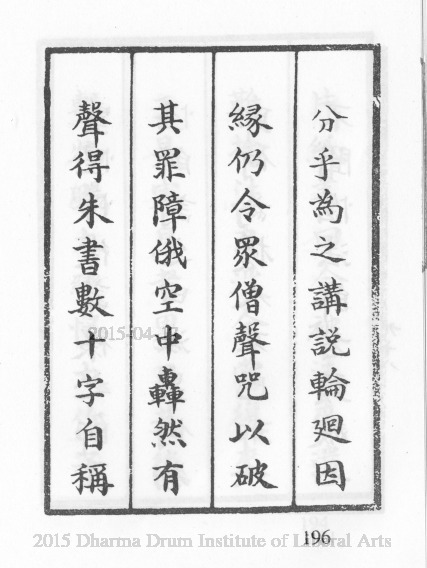 分乎為之講説輪廻因
縁仍令眾僧聲咒以破
其罪障俄空中轟然有
聲得朱書數十字自稱
196
2015 Dharma Drum Institute of Liberal Arts